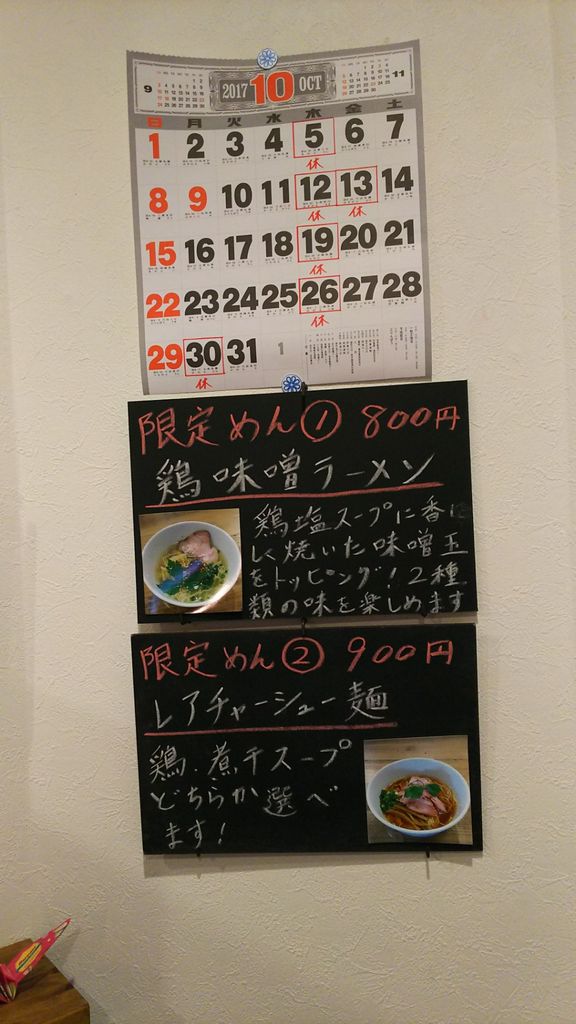 9
2017 10 OCT
11
日 月 火 水 木 金 土
1 2 3 4 5 6 7
休
8 9 10 11 12 13 14
休 休
15 16 17 18 19 20 21
休
22 23 24 25 26 27 28
休
29 30 31 1
休
限定めん① 800円
鶏味噌ラーメン
鶏塩スープに香ば
しく焼いた味噌玉
をトッピング!2種
類の味を楽しめます
限定めん② 900円
レアチャーシュー麺
鶏.煮干スープ
どちらか選べ
ます!